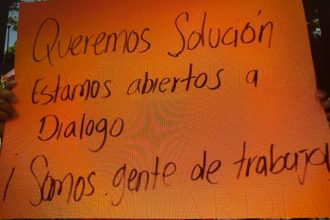 Queremos Solución
Estamos abiertos a
Dialogo
¡Somos gente de trabajo